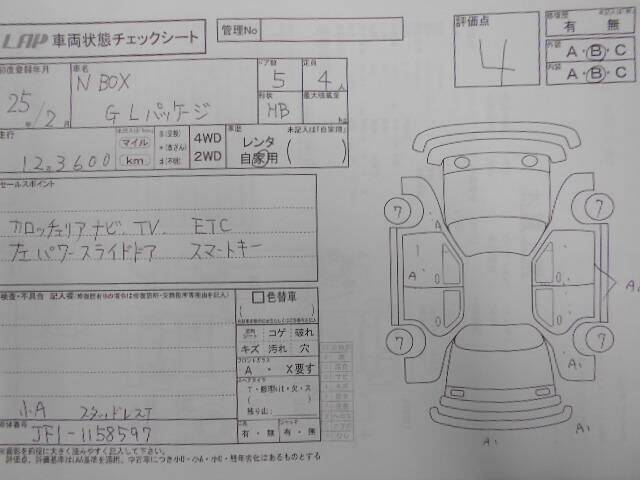 LAP 車両状態チェックシート
管理No
評価点
4
修復歴
有 無
外装
A・B・C
内装
A・B・C
初度登録年月
25年/2月
車名
N BOX
G Lパッケージ
ドア数
5
定員
4人
形状
HB
最大積載量
kg
走行
123600
マイル
km
4WD
2WD
車歴
レンタ
自家用
未記入は「自家用」
セールスポイント
カロッチェリアナビ TV ETC
左パワースライドドア スマートキー
検査・不具合 記入欄
色替車
コゲ 破れ
キズ 汚れ 穴
フロントガラス
A ・ X要す
スペアタイヤ
残り山
小A スタッドレスT
有・無
有・無
車体番号
JF1-1158597
7
7
7
7
A
A
A1
A1
A1